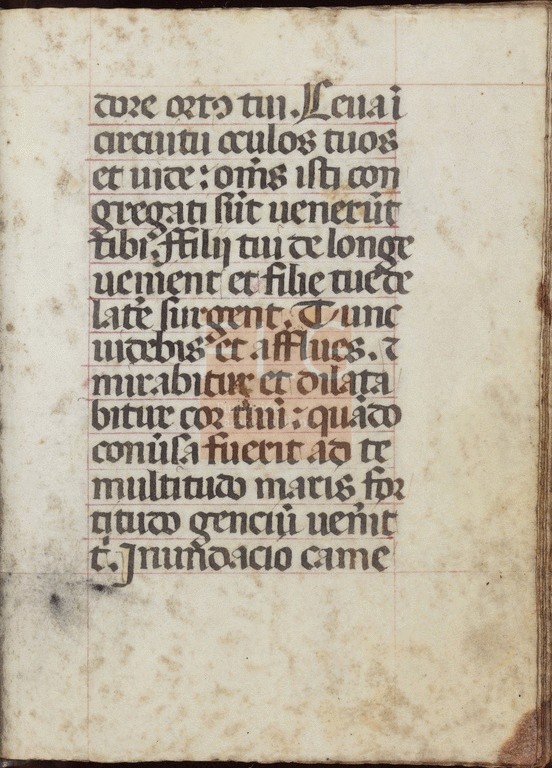 dore ortꝰ tui. Leua ī
circuitu oculos tuos
et uide: om̄s isti con
gregati sūt uenerūt
tibi. ffilij tui de longe
uenient et filie tue de
late surgent. Tunc
uidebis et afflues. ⁊
mirabitur et dilata
bitur cor tuū: quādo
conūsa fuerit ad te
multitudo maris for
titudo genciū uen̄it
t̄. Inundacio came